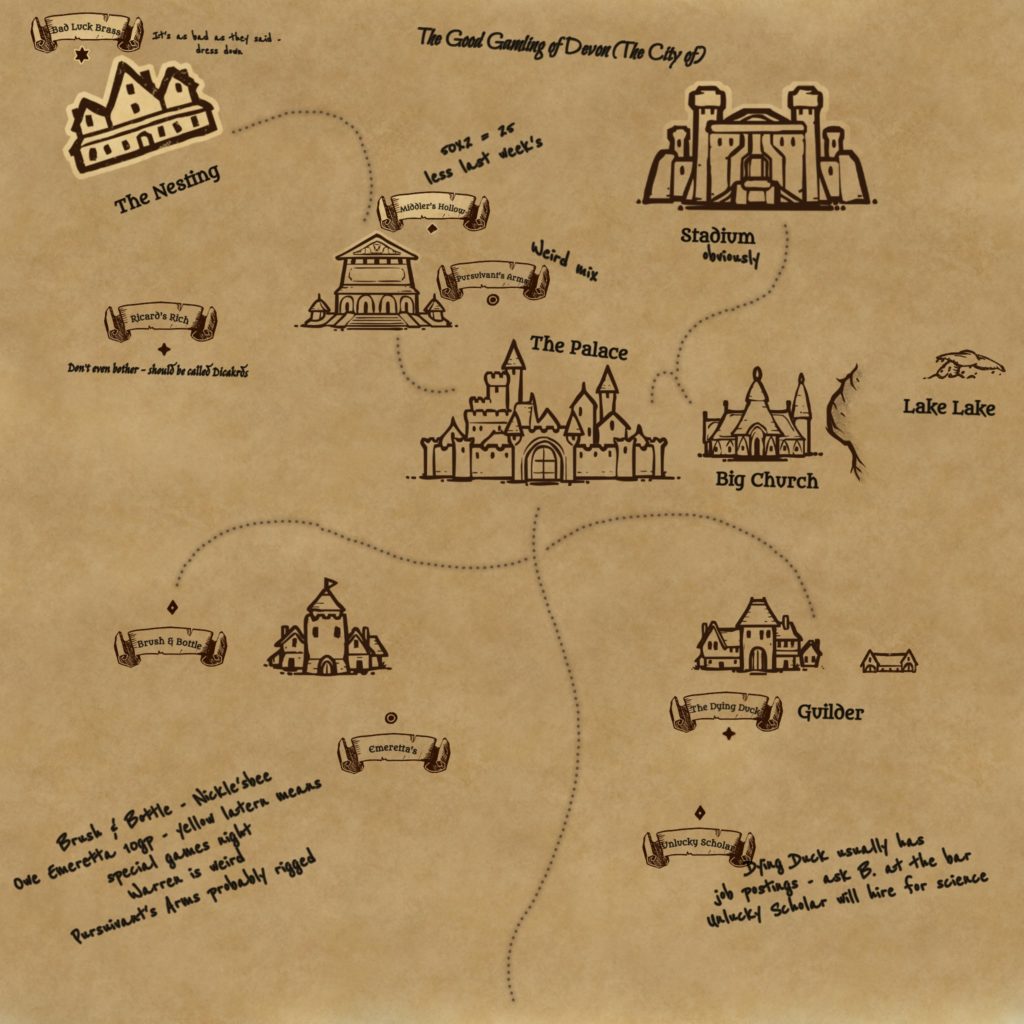 The Good Gamling of Devon (The City of)
Bad Luck Brass
It's as bad as they said -
dress down
The Nesting
50x2 = 25
less last week's
Middler's Hollow
Pursuivant's Arms
Weird mix
Stadium
obviously
Ricard's Rich
Don't even bother - should be called Dicakrds
The Palace
Big Church
Lake Lake
Brush & Bottle
Emeretta's
The Dying Duck
Guilder
Unlucky Scholar
Brush & Bottle - Nickle'sbee
Owe Emeretta 10gp - yellow latern means
special games night
Warren is weird
Pursuivant's Arms probably rigged
Dying Duck usually has
job postings - ask B. at the bar
Unlucky Scholar will hire for science